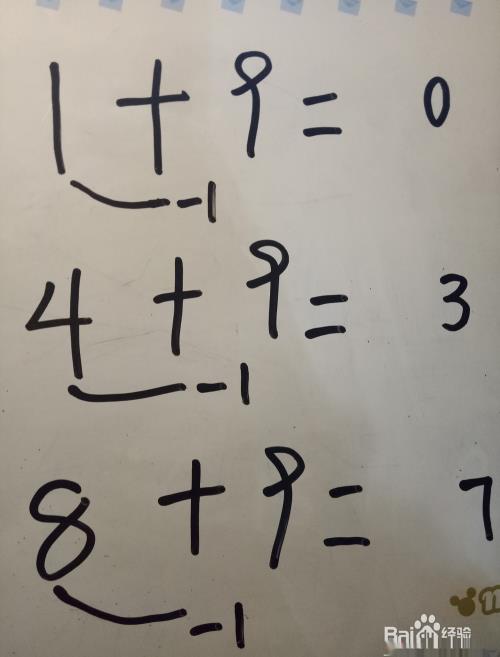 1 + 9 = 0
-1
4 + 9 = 3
-1
8 + 9 = 7
-1
Bai 经验